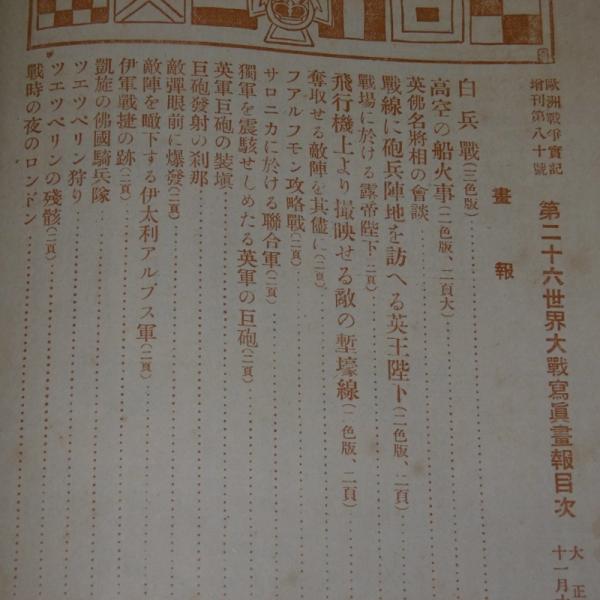 歐洲戰爭實記
增刊第八十號
第二十六世界大戰寫眞畫報目次
大正
十一月十
畫報
白兵戰(三色版)
高空の船火事(二色版、二頁大)
英佛名將相の會談
戰線に砲兵陣地を訪へる英王陛下(二色版、二頁)
戰場に於ける露帝陛下(二頁)
飛行機上より撮映せる敵の塹壕線(一色版、二頁)
奪取せる敵陣を其儘に(二頁)
フアルフモン攻略戰(二頁)
サロニカに於ける聯合軍(二頁)
獨軍を震駭せしめたる英軍の巨砲(二頁)
英軍巨砲の裝塡
巨砲發射の刹那
敵彈眼前に爆發(二頁)
敵陣を瞰下する伊太利アルプス軍(二頁)
伊軍戰捷の跡(二頁)
凱旋の佛國騎兵隊
ツエツペリン狩り
ツエツペリンの殘骸(二頁)
戰時の夜のロンドン